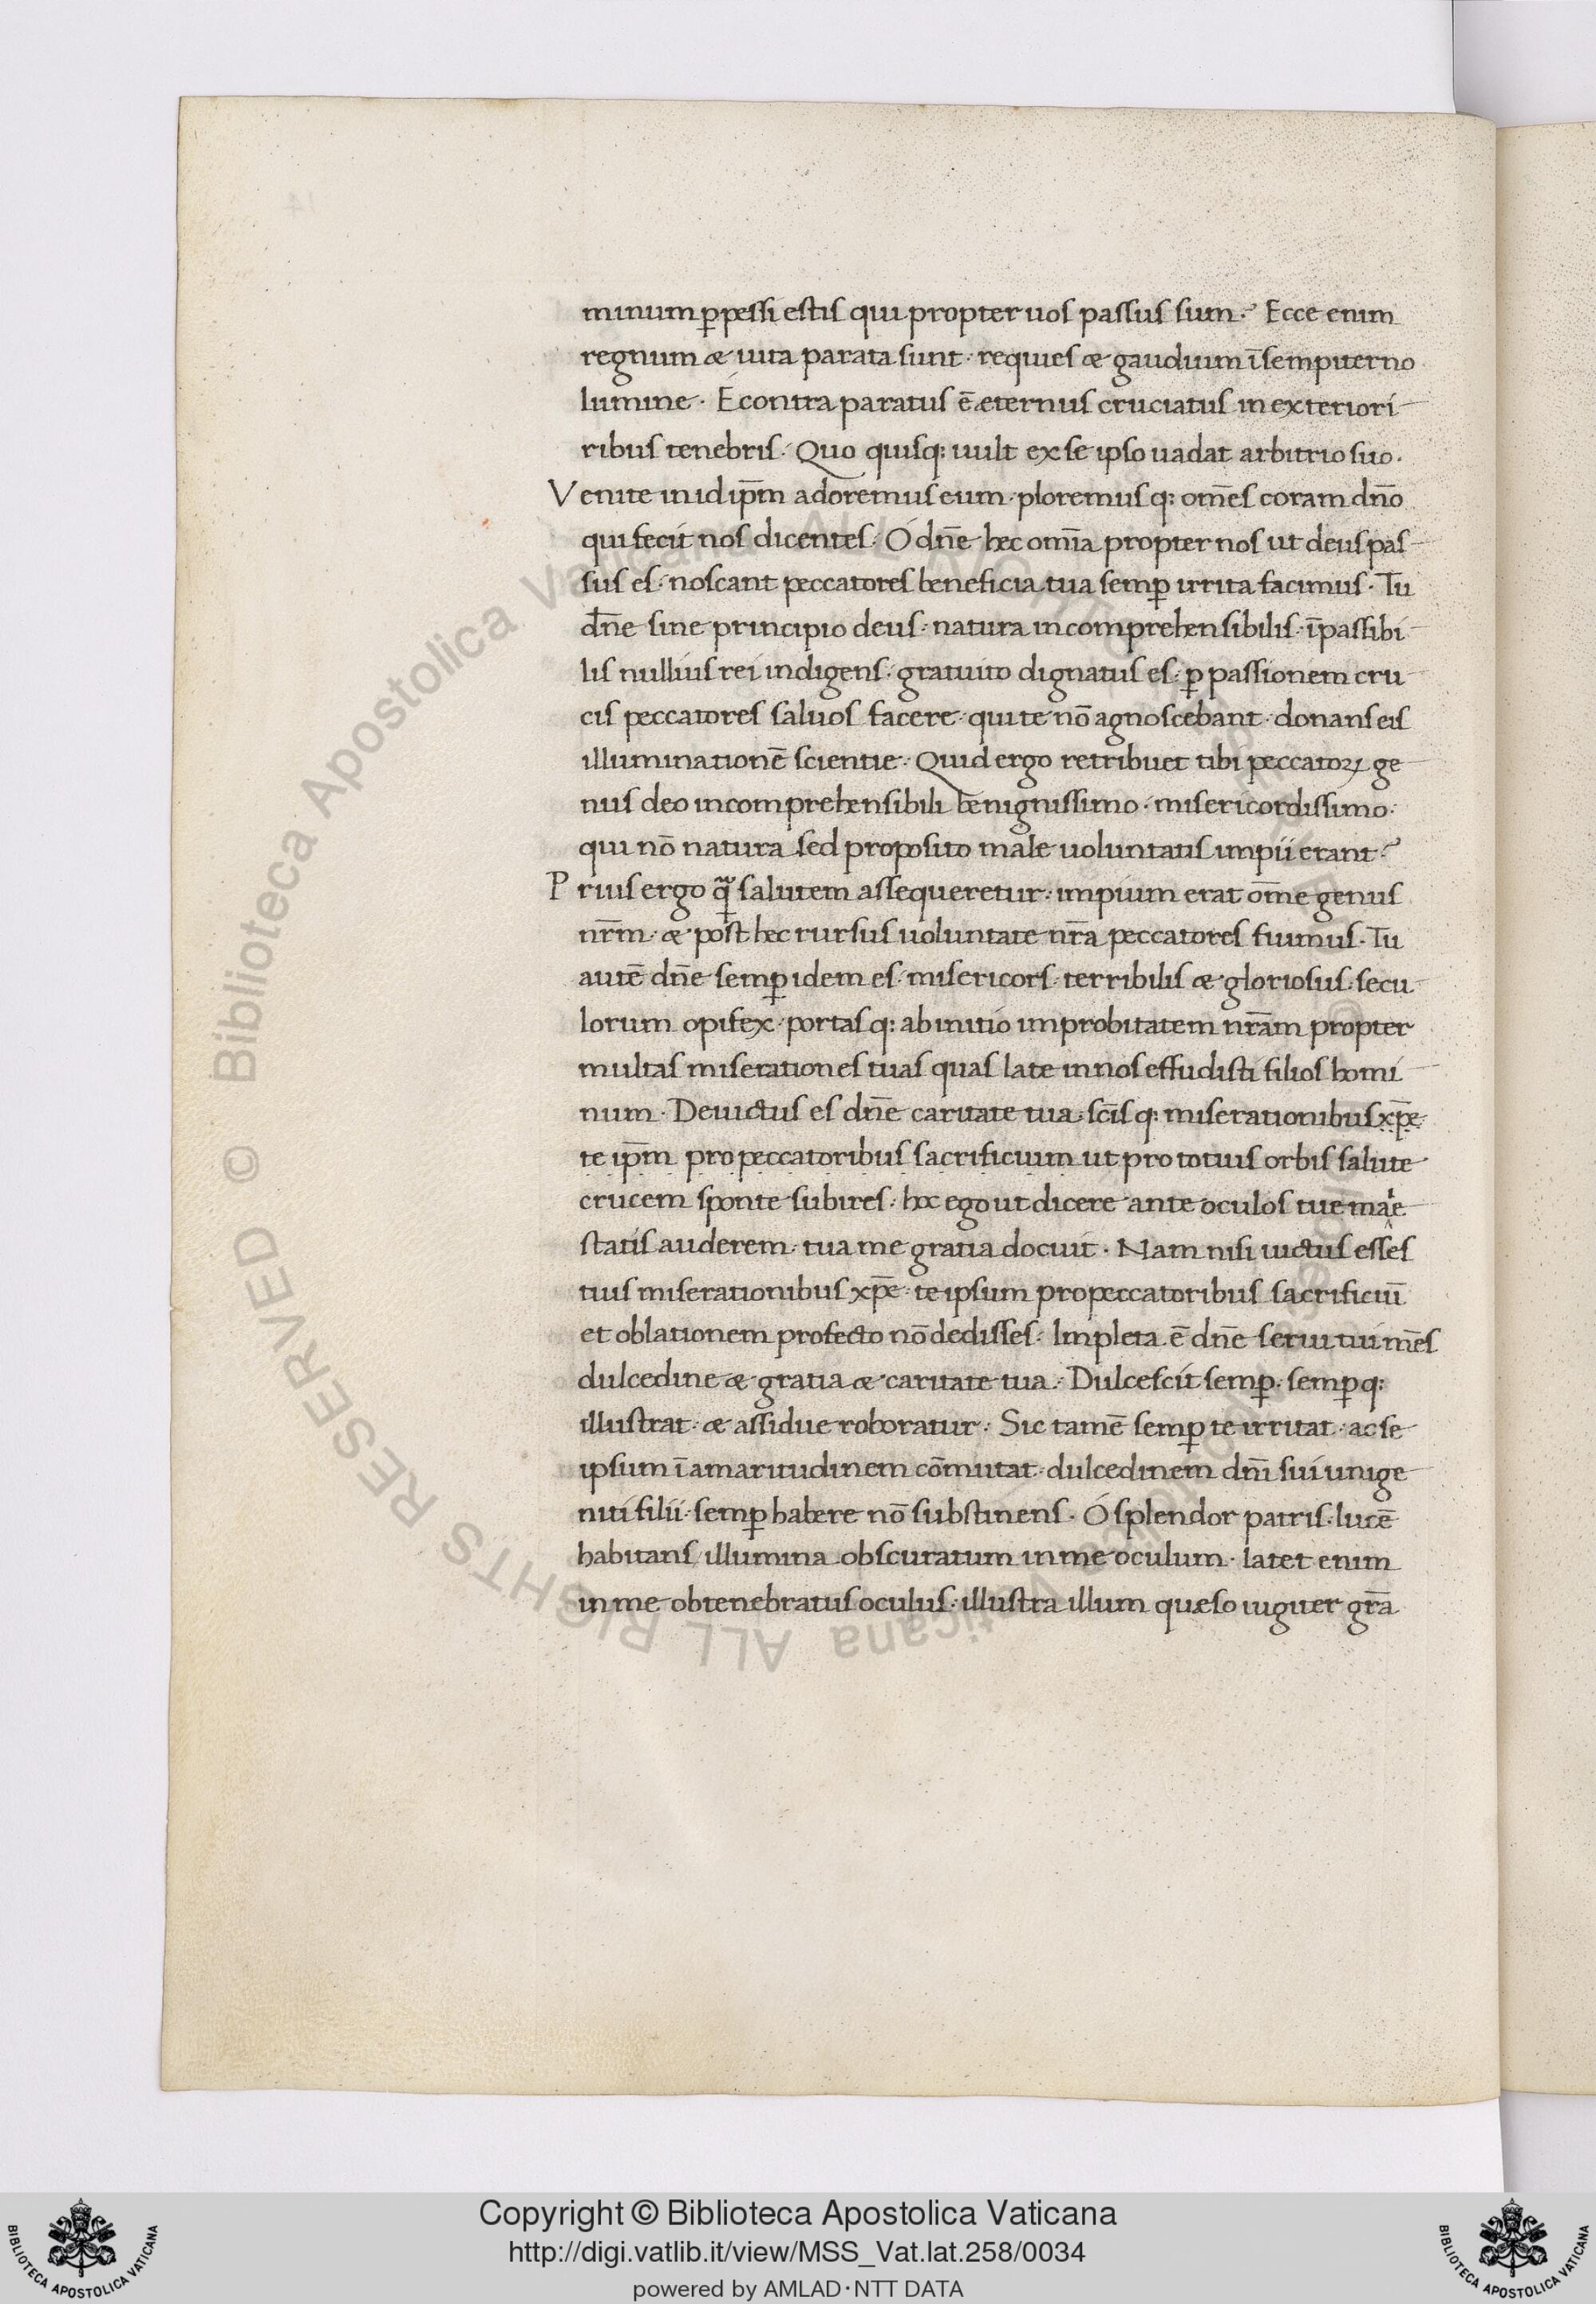 minum ꝑpessi estis qui propter uos passus sum? Ecce enim
regnum æ uita parata sunt · requies æ gaudium ī sempiterno
lumine · É contra paratus ē æternus cruciatus in exteriori
ribus tenebris · Quo quisq: uult ex se ipso uadat arbitrio suo ·
Venite in id ip̄m adoremus eum · ploremus q: om̄es coram dn̄o
qui fecit nos dicentes · Ó dn̄e hec omīa propter nos ut deus pas
sus es · noscant peccatores beneficia tua semꝑ irrita facimus · Tu
dn̄e sine principio deus · natura incomprehensibilis · īpassibi
lis nullius rei indigens · gratuito dignatus es · ꝑ passionem cru
cis peccatores saluos facere · qui te nō agnoscebant · donans eis
illuminationē scientie · Quid ergo retribuet tibi peccatoꝝ ge
nus deo incomprehensibili benignissimo · misericordissimo ·
qui nō natura sed proposito male uoluntatis impii erant?
Prius ergo q̃ salutem assequeretur · impium erat om̄e genus
nr̄m · æ post hec rursus uoluntate nr̄a peccatores fuimus · Tu
autē dn̄e semꝑ idem es · misericors · terribilis æ gloriosus · secu
lorum opifex · portas q: ab initio improbitatem nr̄am propter
multas miserationes tuas quas late in nos effudisti filios homi
num · Deuictus es dn̄e caritate tua · sc̄is q: miserationibus xp̄e
te ip̄m pro peccatoribus sacrificium ut pro totius orbis salute
crucem sponte subires · hoc ego ut dicere ante oculos tue maie
statis auderem · tua me gratia docuit · Nam nisi uictus esses
tuis miserationibus xp̄e · te ipsum pro peccatoribus sacrificiū
et oblationem profecto nō dedisses · Impleta ē dn̄e serui tui mēs
dulcedine æ gratia æ caritate tua · Dulcescit semꝑ · semꝑ q:
illustrat · æ assidue roboratur · Sic tamē semꝑ te irritat · ac se
ipsum ī amaritudinem cōmutat · dulcedinem dn̄i sui unige
niti filii · semꝑ habere nō substinens · Ó splendor patris · lucē
habitans illumina obscuratum in me oculum · latet enim
in me obtenebratus oculus · illustra illum quæso iugiter gr̄a
14
Copyright © Biblioteca Apostolica Vaticana
http://digi.vatlib.it/view/MSS_Vat.lat.258/0034
powered by AMLAD·NTT DATA
BIBLIOTECA APOSTOLICA VATICANA
BIBLIOTECA APOSTOLICA VATICANA